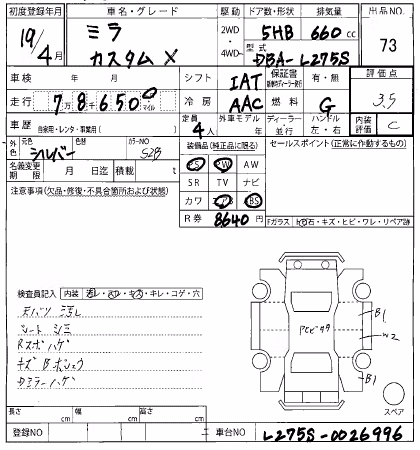 初度登録年月 車名・グレード 駆動 ドア数・形状 排気量 出品NO.
19/4月 ミラ カスタム X 2WD 4WD 5HB 660cc 73
型式 DBA-L275S
車検 年 月 シフト IAT 保証書 有・無 評価点
走行 7万8千650 マイル 冷房 AAC 燃料 G 3.5
車歴 自家用・レンタ・事業用( ) 定員 4人 外車モデル 年 ディーラー・並行 ハンドル 左・右 内装評価 C
外色 元色 シルバー 色替 カラーNO S28 装備品(純正品に限る) セールスポイント(正常に作動するもの)
名義変更期限 月 日迄 積載 t PS PW AW
SR TV ナビ
注意事項(欠品・修復・不具合箇所および状態) カワ エアB ABS
R券 8640円 Fガラス トビ石・キズ・ヒビ・ワレ・リペア跡
検査員記入 内装 汚レ・スレ・キズ・キレ・コゲ・穴
天バリ 汚レ
シート シミ
B1
W2
B1
スペア
長さ cm 幅 cm 高さ cm
登録NO 車台NO L275S-0026996